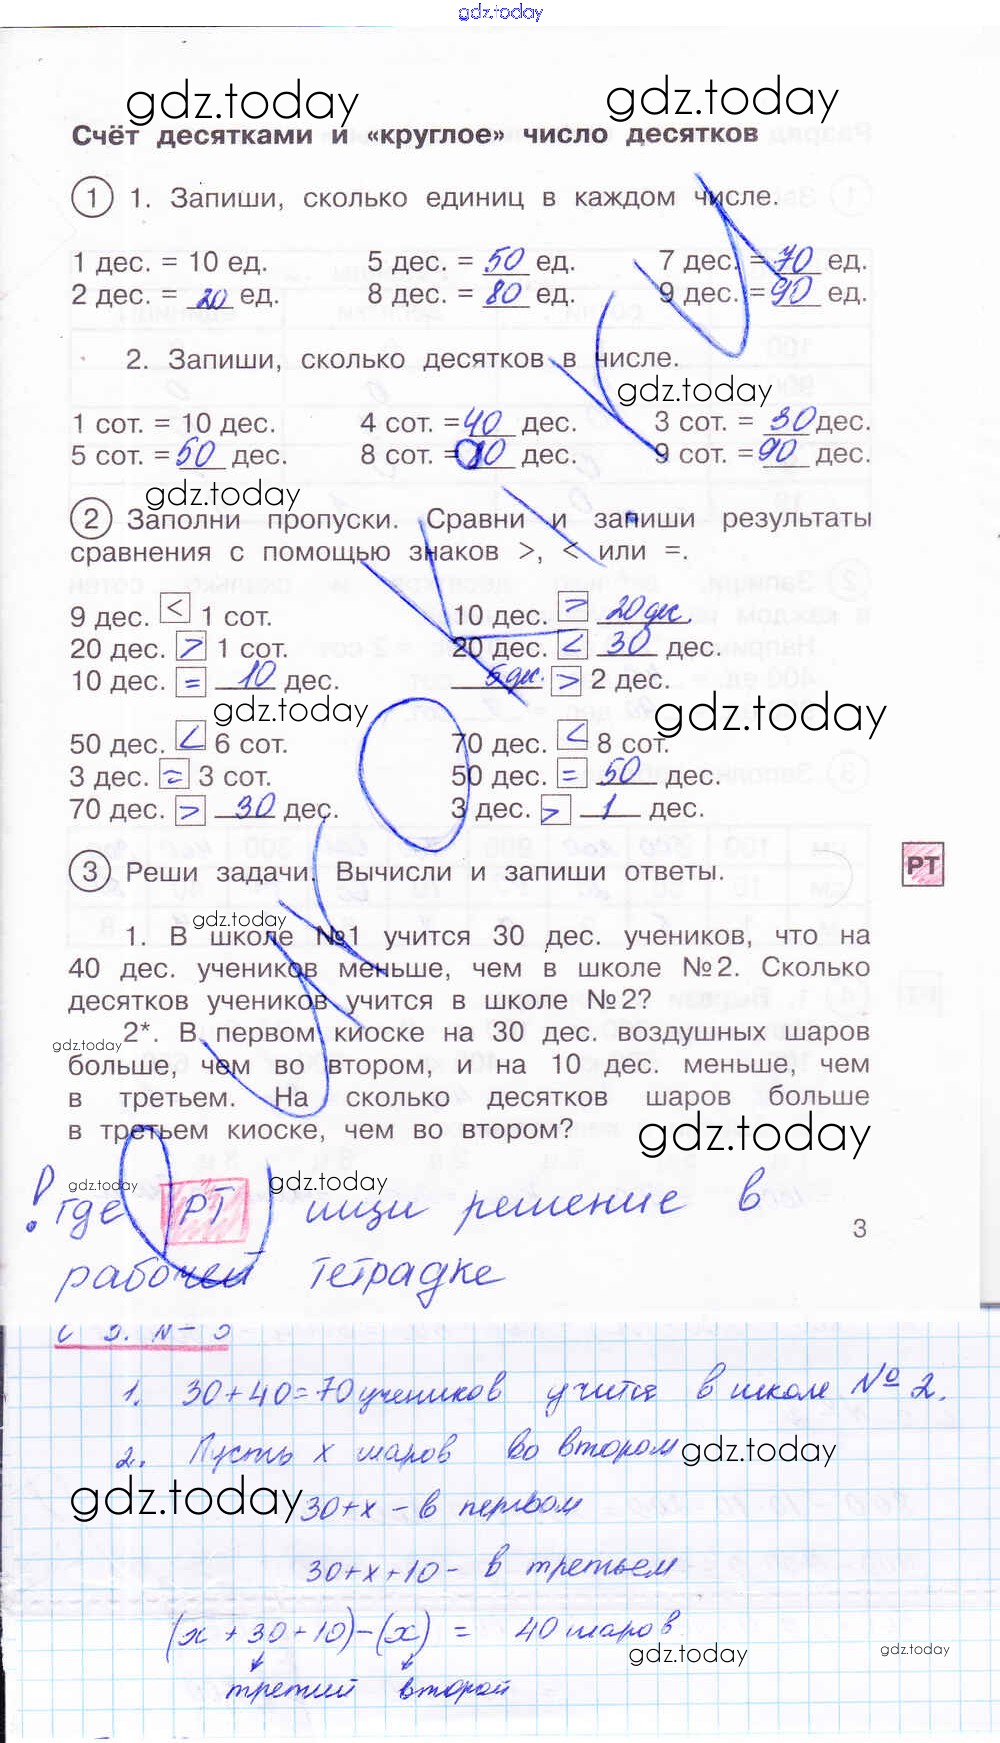 gdz.today
gdz.today gdz.today
Счёт десятками и «круглое» число десятков
1 1. Запиши, сколько единиц в каждом числе.
1 дес. = 10 ед. 5 дес. = 50 ед. 7 дес. = 70 ед.
2 дес. = 20 ед. 8 дес. = 80 ед. 9 дес. = 90 ед.
2. Запиши, сколько десятков в числе.
gdz.today
1 сот. = 10 дес. 4 сот. = 40 дес. 3 сот. = 30 дес.
5 сот. = 50 дес. 8 сот. = 80 дес. 9 сот. = 90 дес.
gdz.today
2 Заполни пропуски. Сравни и запиши результаты
сравнения с помощью знаков >, < или =.
9 дес. < 1 сот. 10 дес. = 20 дес.
20 дес. > 1 сот. 20 дес. < 30 дес.
10 дес. = 10 дес. 5 дес. > 2 дес.
gdz.today gdz.today
50 дес. < 6 сот. 70 дес. < 8 сот.
3 дес. = 3 сот. 50 дес. = 50 дес.
70 дес. > 30 дес. 3 дес. > 1 дес.
3 Реши задачи. Вычисли и запиши ответы. РТ
gdz.today
1. В школе №1 учится 30 дес. учеников, что на
40 дес. учеников меньше, чем в школе №2. Сколько
десятков учеников учится в школе №2?
2*. В первом киоске на 30 дес. воздушных шаров
gdz.today
больше, чем во втором, и на 10 дес. меньше, чем
в третьем. На сколько десятков шаров больше
в третьем киоске, чем во втором?
gdz.today
gdz.today gdz.today
! где РТ пиши решение в
3
рабочей тетрадке
1. 30+40=70 учеников учится в школе № 2.
2. Пусть x шаров во втором
gdz.today
gdz.today
30+x - в первом
30+x+10 - в третьем
(x + 30 + 10) - (x) = 40 шаров
gdz.today gdz.today
третий второй